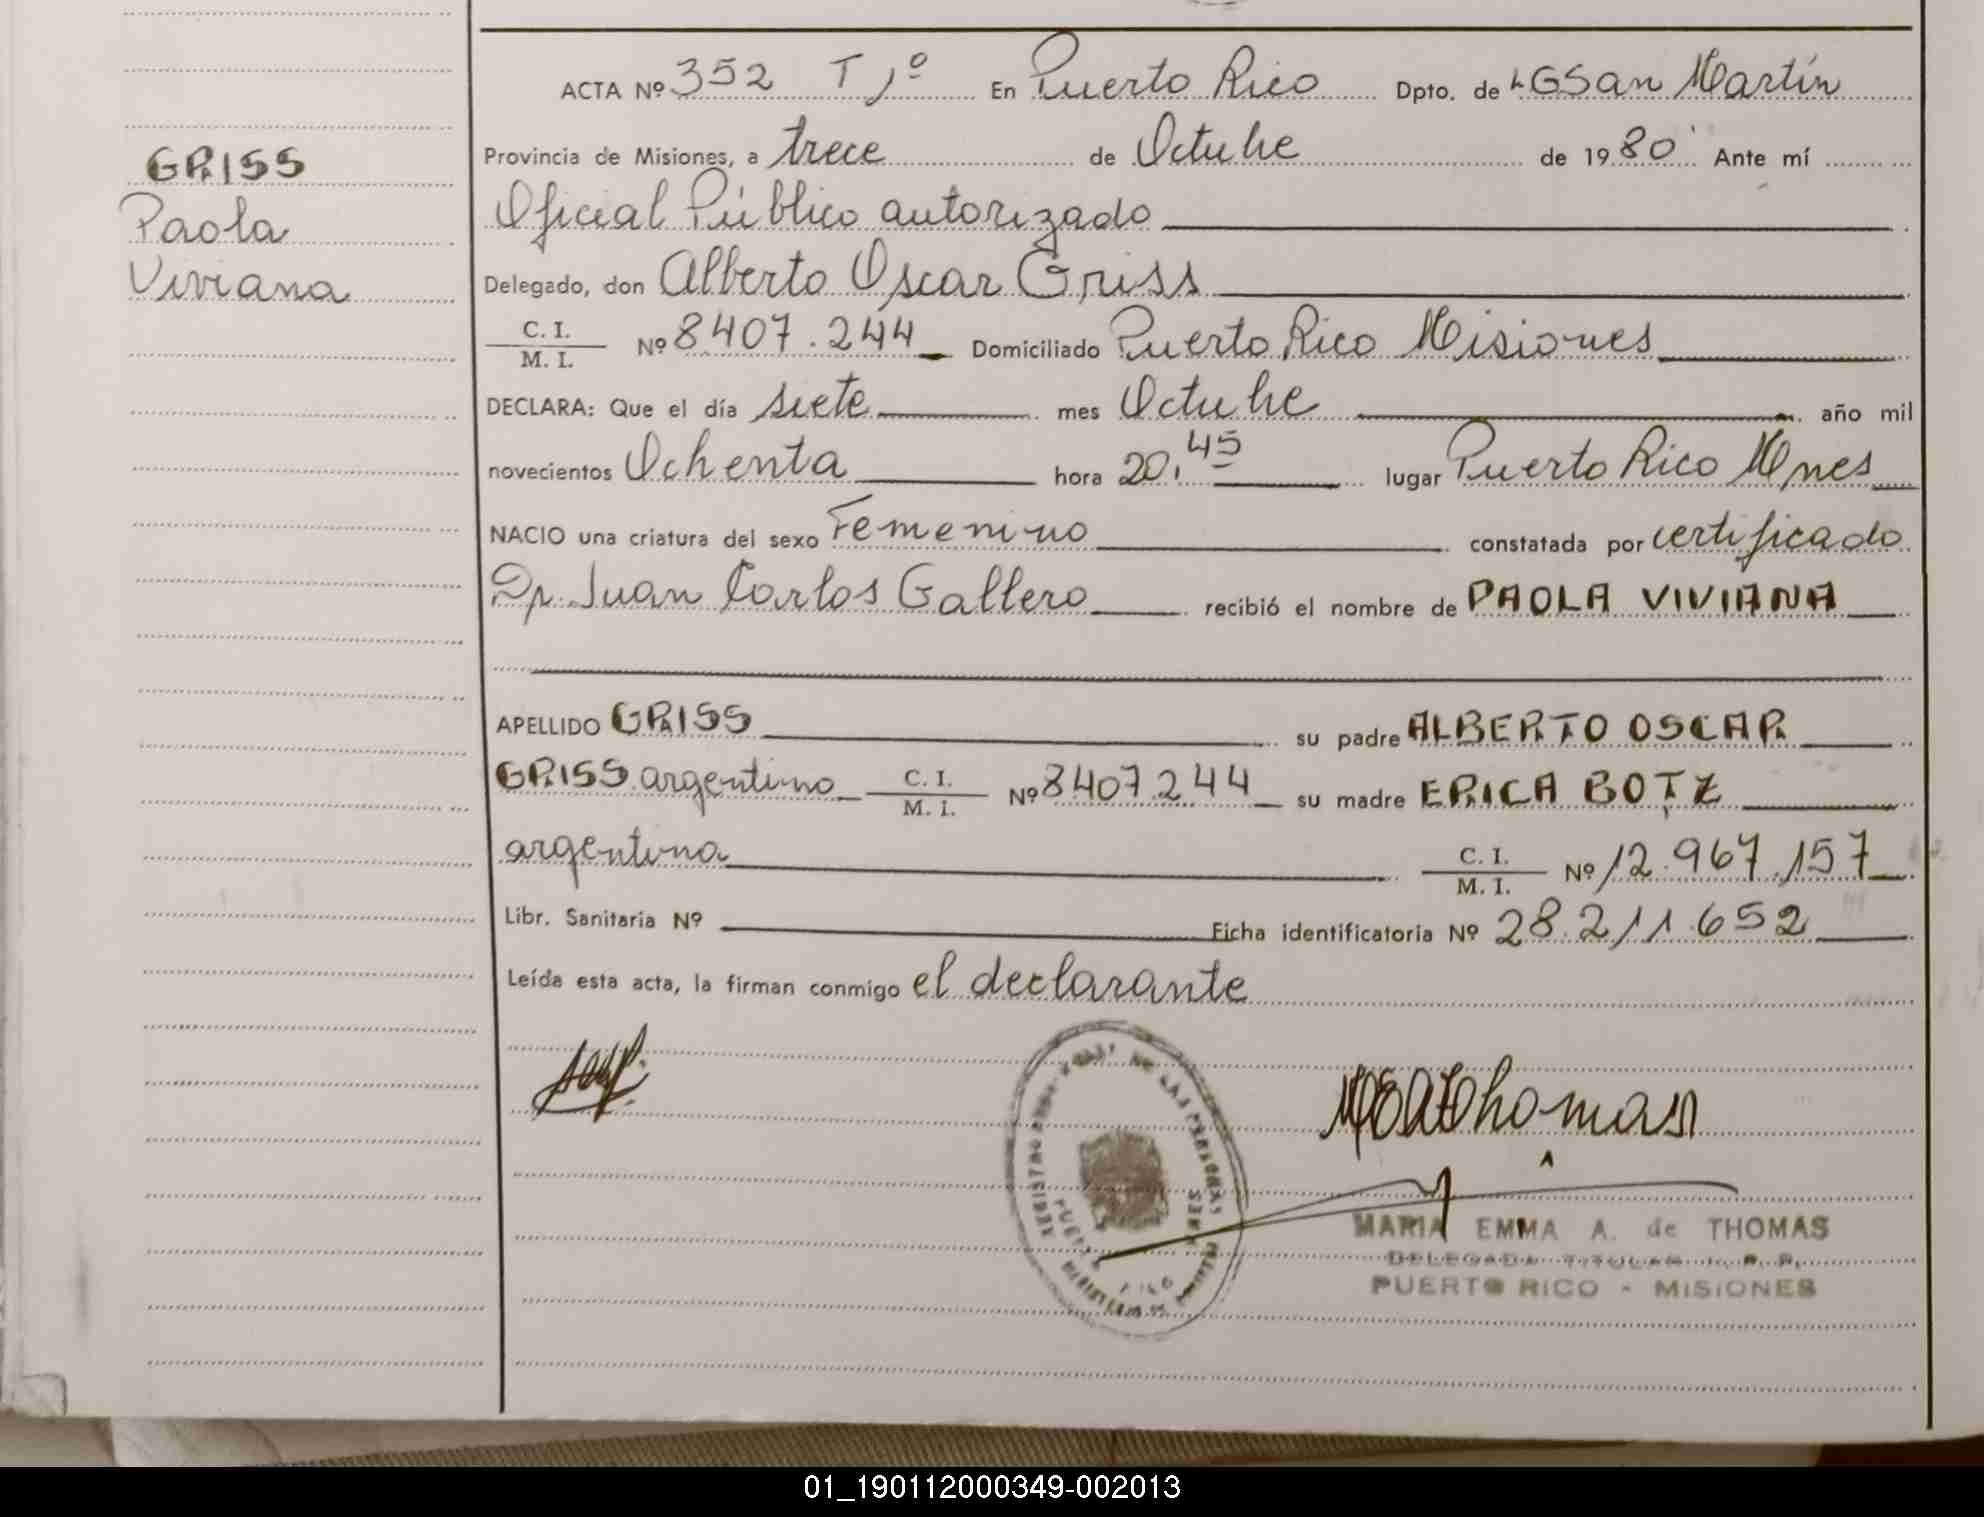 ACTA Nº 352 T 1º En Puerto Rico Dpto. de LGSan Martín
Provincia de Misiones, a trece de Octubre de 1980 Ante mí
GRISS
Paola
Viviana
Oficial Público autorizado
Delegado, don Alberto Oscar Griss
C. I.
M. I.
Nº 8407.244 Domiciliado Puerto Rico Misiones
DECLARA: Que el día siete mes Octubre año mil
novecientos Ochenta hora 20,45 lugar Puerto Rico Mnes
NACIO una criatura del sexo Femenino constatada por certificado
Dr. Juan Carlos Gallero recibió el nombre de PAOLA VIVIANA
APELLIDO GRISS su padre ALBERTO OSCAR
GRISS argentino C. I. M. I. Nº 8407.244 su madre ERICA BOTZ
argentina C. I. M. I. Nº 12.967.157
Libr. Sanitaria Nº Ficha identificatoria Nº 28.211.652
Leída esta acta, la firman conmigo el declarante
MEAThomas
MARIA EMMA A. de THOMAS
DELEGADA TITULAR
PUERTO RICO - MISIONES
01_190112000349-002013